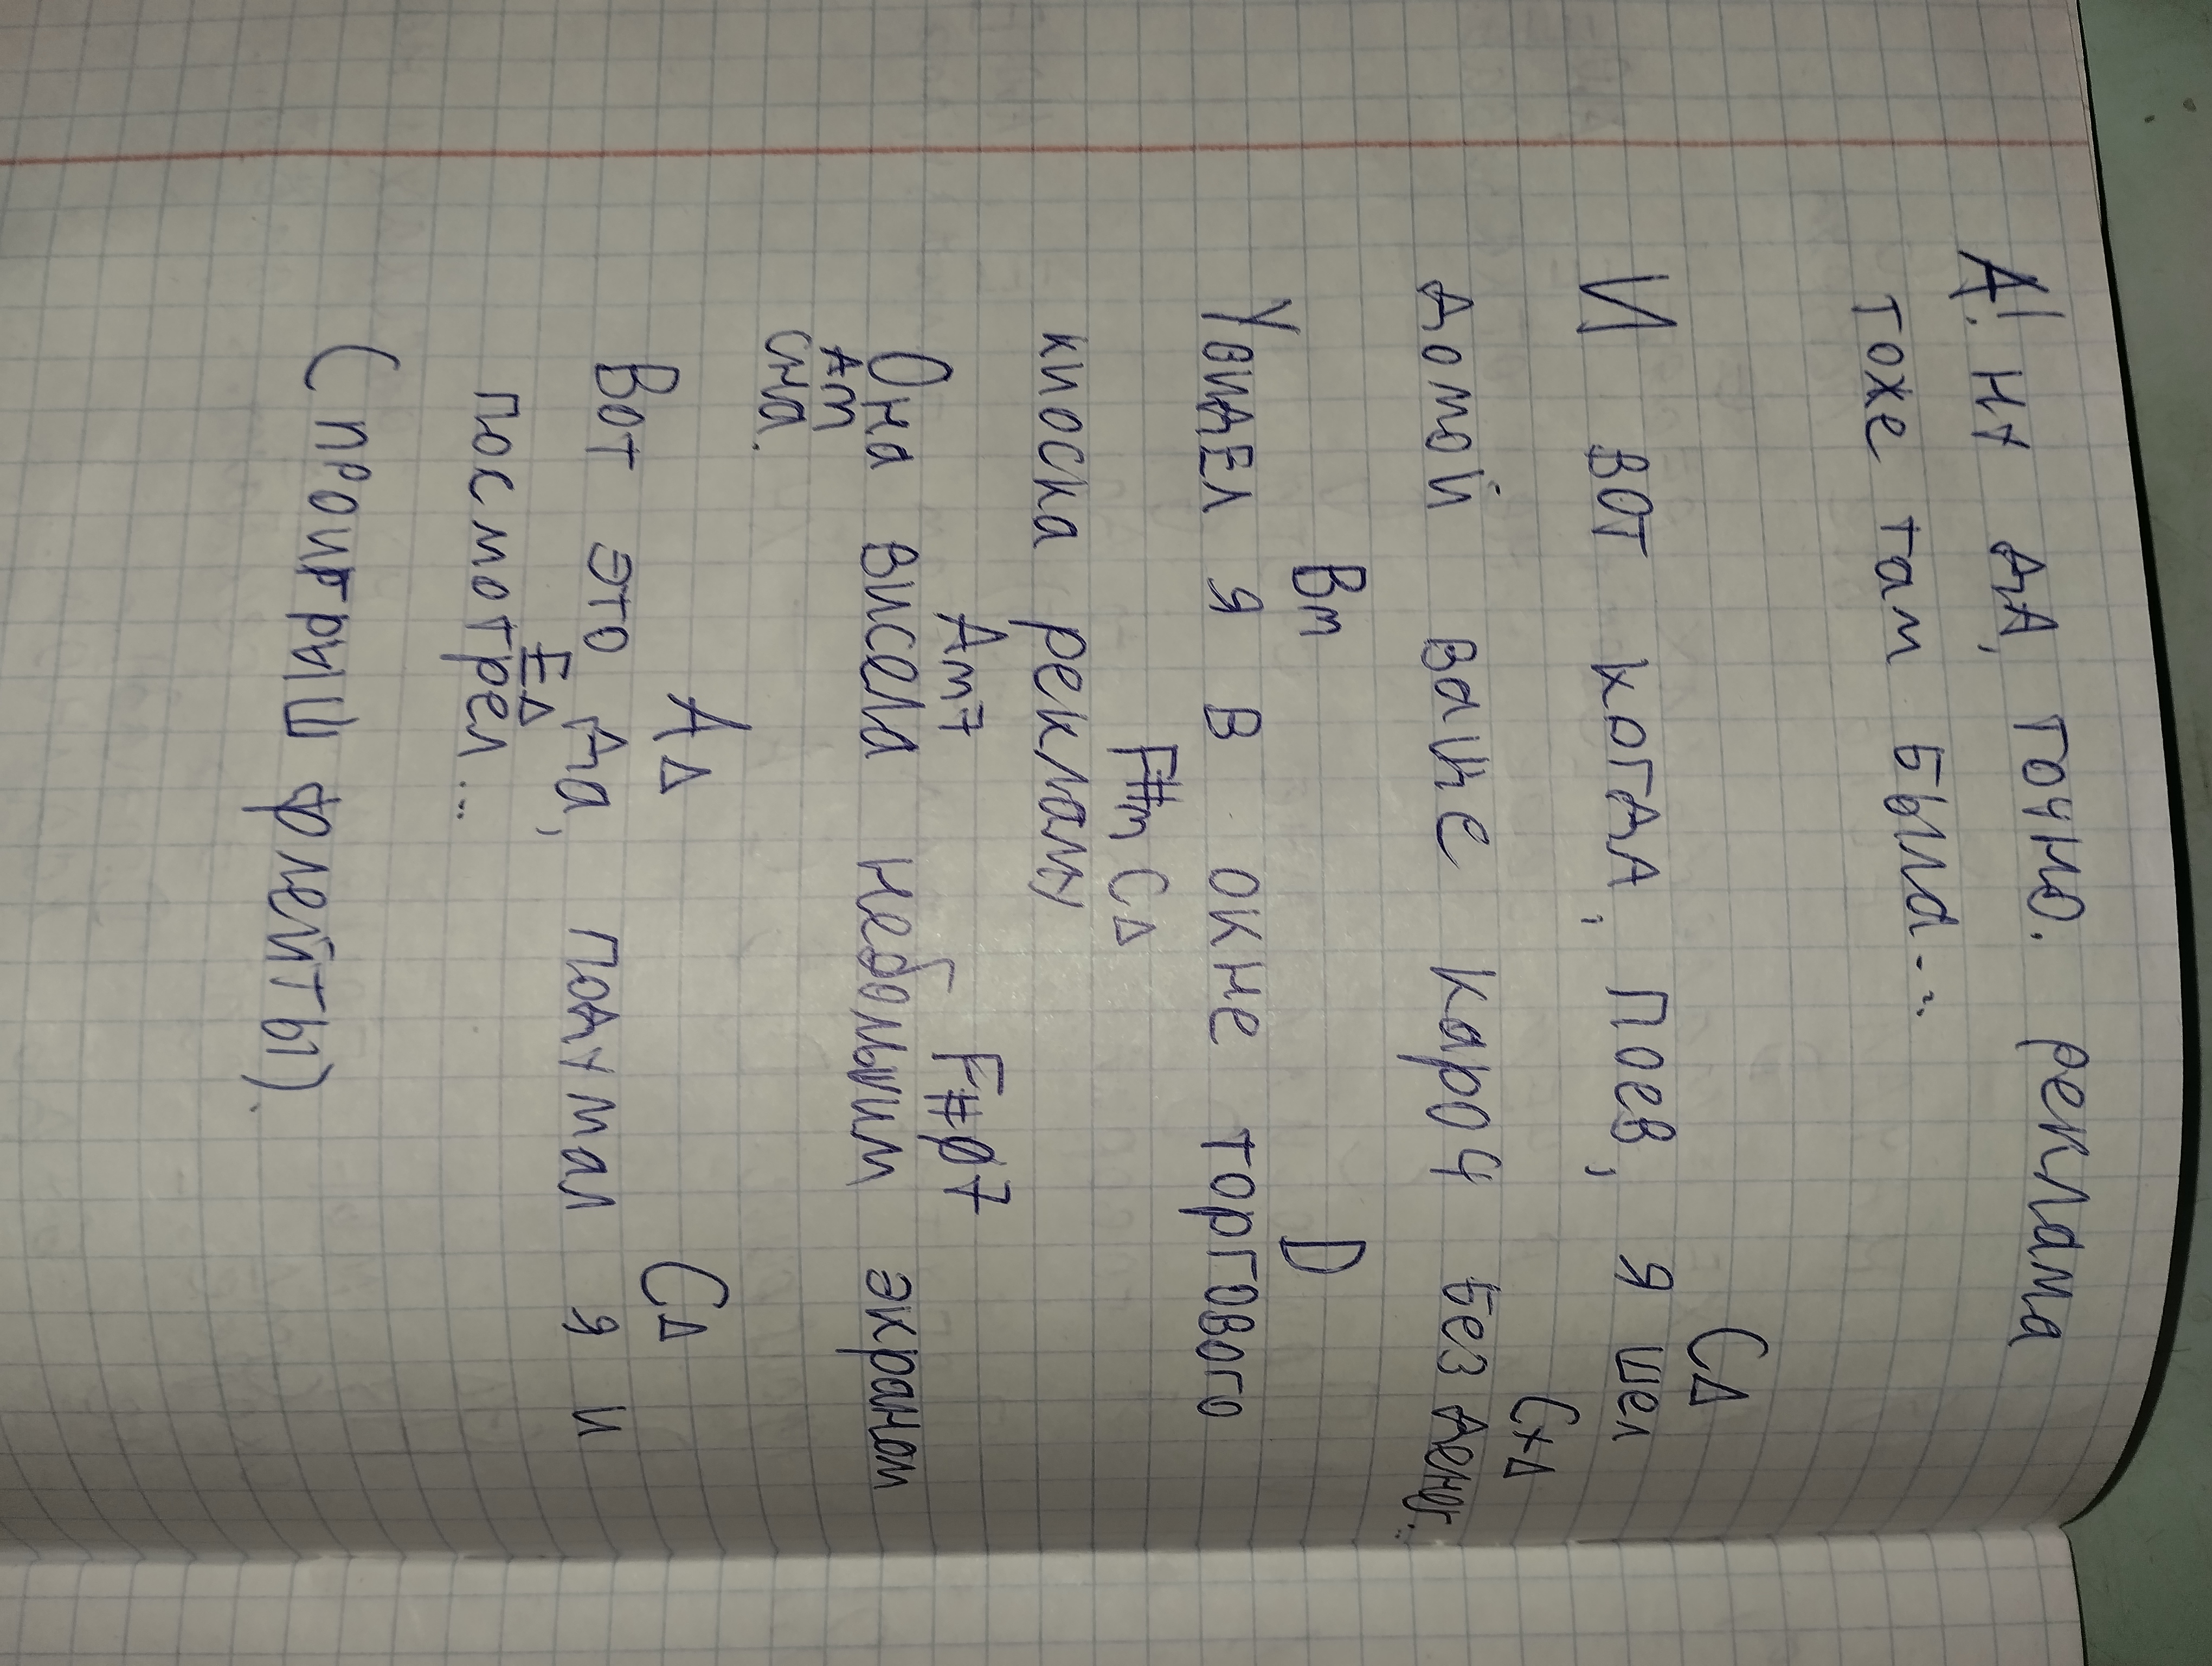 А! Ну да, точно. реклама
тоже там была...
СΔ
И вот когда, поев, я шел
C+Δ
домой ваще кароч без денег...
Bm D
Увидел я в окне торгового
F#m CΔ
киоска рекламу
Am7 F#ø7
Она висела небольшим экраном
Am
сна.
AΔ CΔ
Вот это да, подумал я и
EΔ
посмотрел...
(проигрыш флейты).